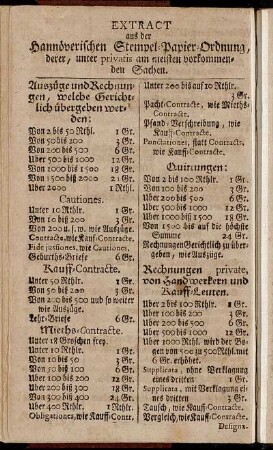 EXTRACT
aus der
Hannöverischen Stempel-Papier-Ordnung,
derer, unter privatis am meisten vorkommen-
den Sachen.
Auszüge und Rechnun-
gen, welche Gericht-
lich übergeben wer-
den:
Von 2 bis 50 Rthl. 1 Gr.
Von 50 bis 200 3 Gr.
Von 200 bis 500 6 Gr.
Uber 500 bis 1000 12 Gr.
Von 1000 bis 1500 18 Gr.
Von 1500 biß 2000 21 Gr.
Uber 2000 1 Rthl.
Cautiones.
Unter 10 Rthlr. 1 Gr.
Von 10 bis 200 3 Gr.
Von 200 u. s. w. wie Auszüge.
Contracte, wie Kauff-Contracte.
Fide jussiones, wie Cautiones.
Geburths-Briefe 6 Gr.
Kauff-Contracte.
Unter 50 Rthlr. 1 Gr.
Von 50 bis 200 3 Gr.
Von 200 bis 500 und so weiter
wie Auszüge.
Lehr-Briefe 6 Gr.
Mieths-Contracte.
Unter 18 Groschen frey.
Unter 10 Rthlr. 1 Gr.
Von 10 bis 50 3 Gr.
Von 50 bis 100 6 Gr.
Uber 100 bis 200 12 Gr.
Uber 200 bis 300 18 Gr.
Uber 300 bis 400 24 Gr.
Uber 400 Rthlr. 1 Rthlr.
Obligationes, wie Kauff-Contr.
Unter 200 bis auf 10 Rthlr.
3 Gr.
Pacht-Contracte, wie Mieths-
Contracte.
Pfand-Verschreibung, wie
Kauff-Contracte.
Punctationes, statt Contracts,
wie Kauff-Contracte.
Quitungen:
Von 2 bis 100 Rthlr. 1 Gr.
Von 100 bis 200 3 Gr.
Uber 200 bis 500 6 Gr.
Uber 500 bis 1000 12 Gr.
Uber 1000 bis 1500 18 Gr.
Von 1500 bis auf die höchste
Summe 24 Gr.
Rechnungen Gerichtlich zu über-
geben, wie Auszüge.
Rechnungen private,
von Handwerkern und
Kauff-Leuten.
Uber 2 bis 100 Rthlr. 1 Gr.
Uber 100 bis 200 3 Gr.
Uber 200 bis 500 6 Gr.
Uber 500 bis 1000 12 Gr.
Uber 1000 Rthl. wird der Bo-
gen von 500 zu 500 Rthl. mit
6 Gr. erhöhet.
Supplicata, ohne Verflagung
eines dritten 1 Gr.
Supplicata, mit Verklagung ei-
nes dritten 3 Gr.
Tausch, wie Kauff-Contracte.
Vergleich, wie Kauff-Contracte.
Designa-